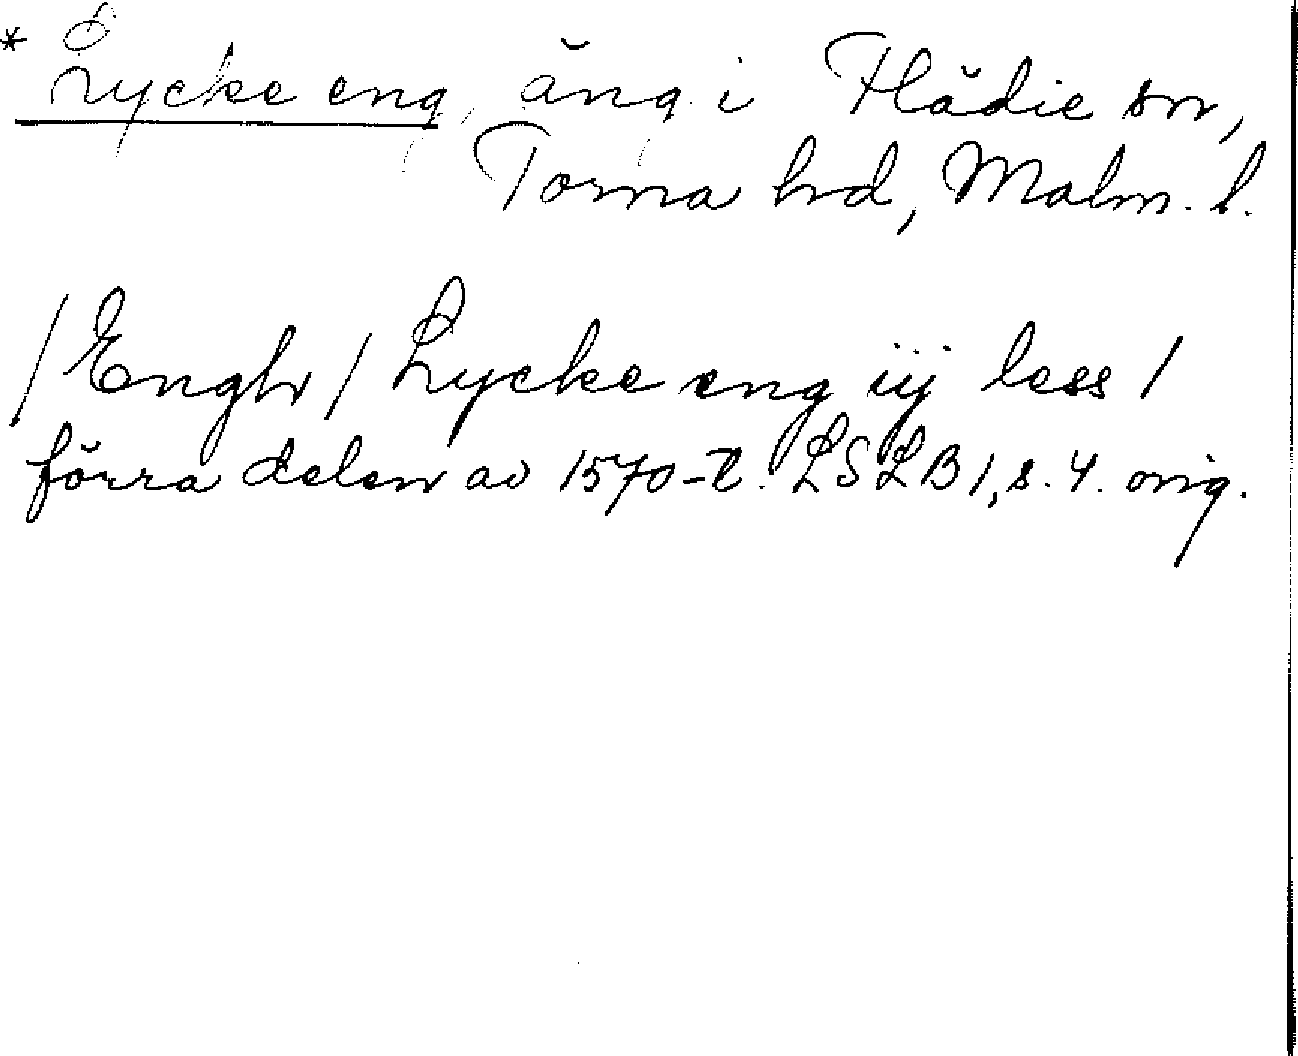 * Lycke eng, äng i Flädie sn,
Torna hd, Malm. l.
/ Engh / Lycke eng iij less /
förra delen av 1570-t. LSLB 1, s. 4. orig.